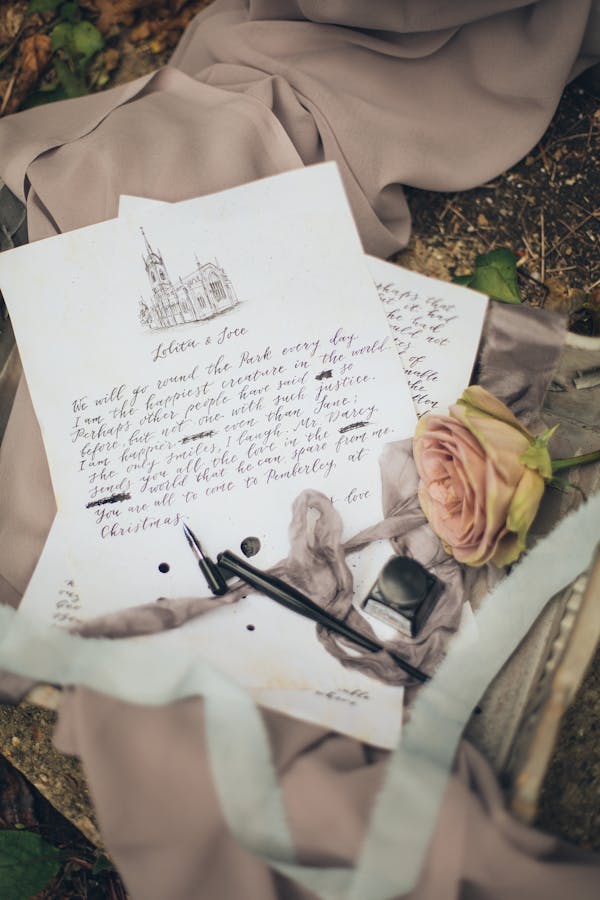 Lolita & Joce
We will go round the Park every day.
I am the happiest creature in the world.
Perhaps other people have said so
before, but not one with such justice.
I am happier even than Jane;
she only smiles, I laugh. Mr. Darcy
sends you all the love in the
world that he can spare from me.
You are all to come to Pemberley, at
Christmas.
love
perhaps that
it had
he had
not
of
where